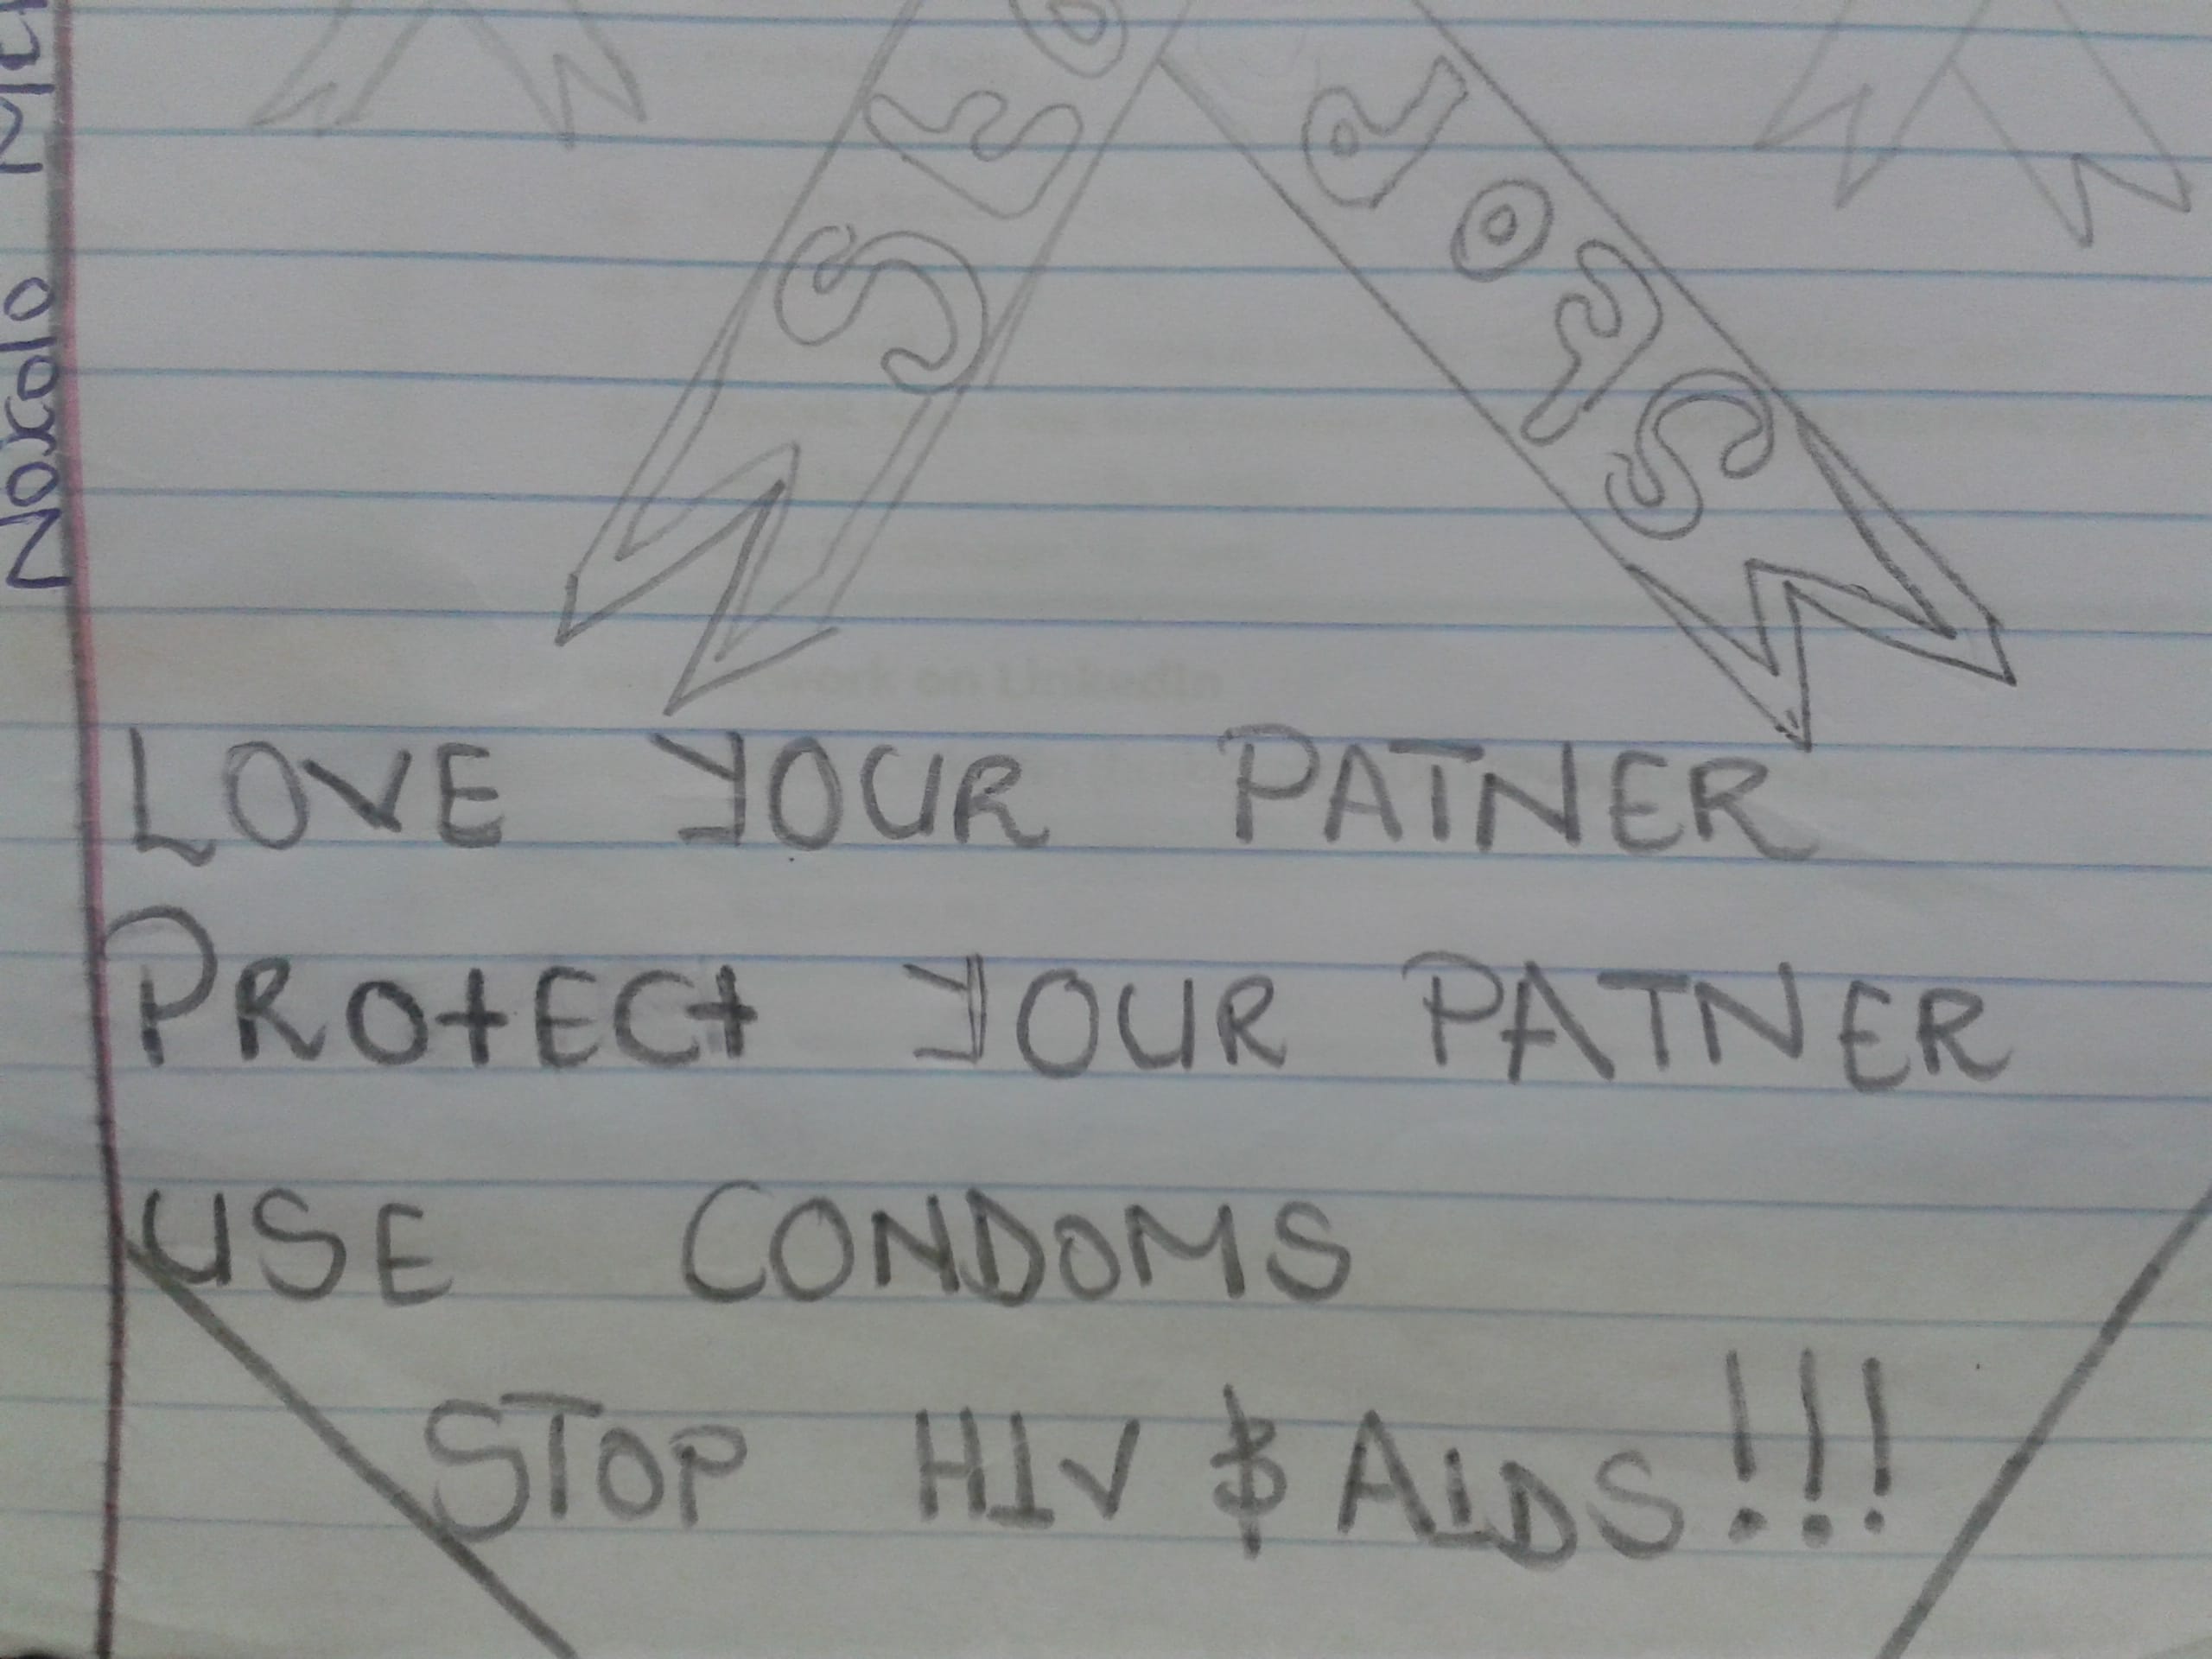 Noxolo
STOP
LOVE YOUR PATNER
PROtECt YOUR PATNER
USE CONDOMS
STOP HIV & AIDS!!!